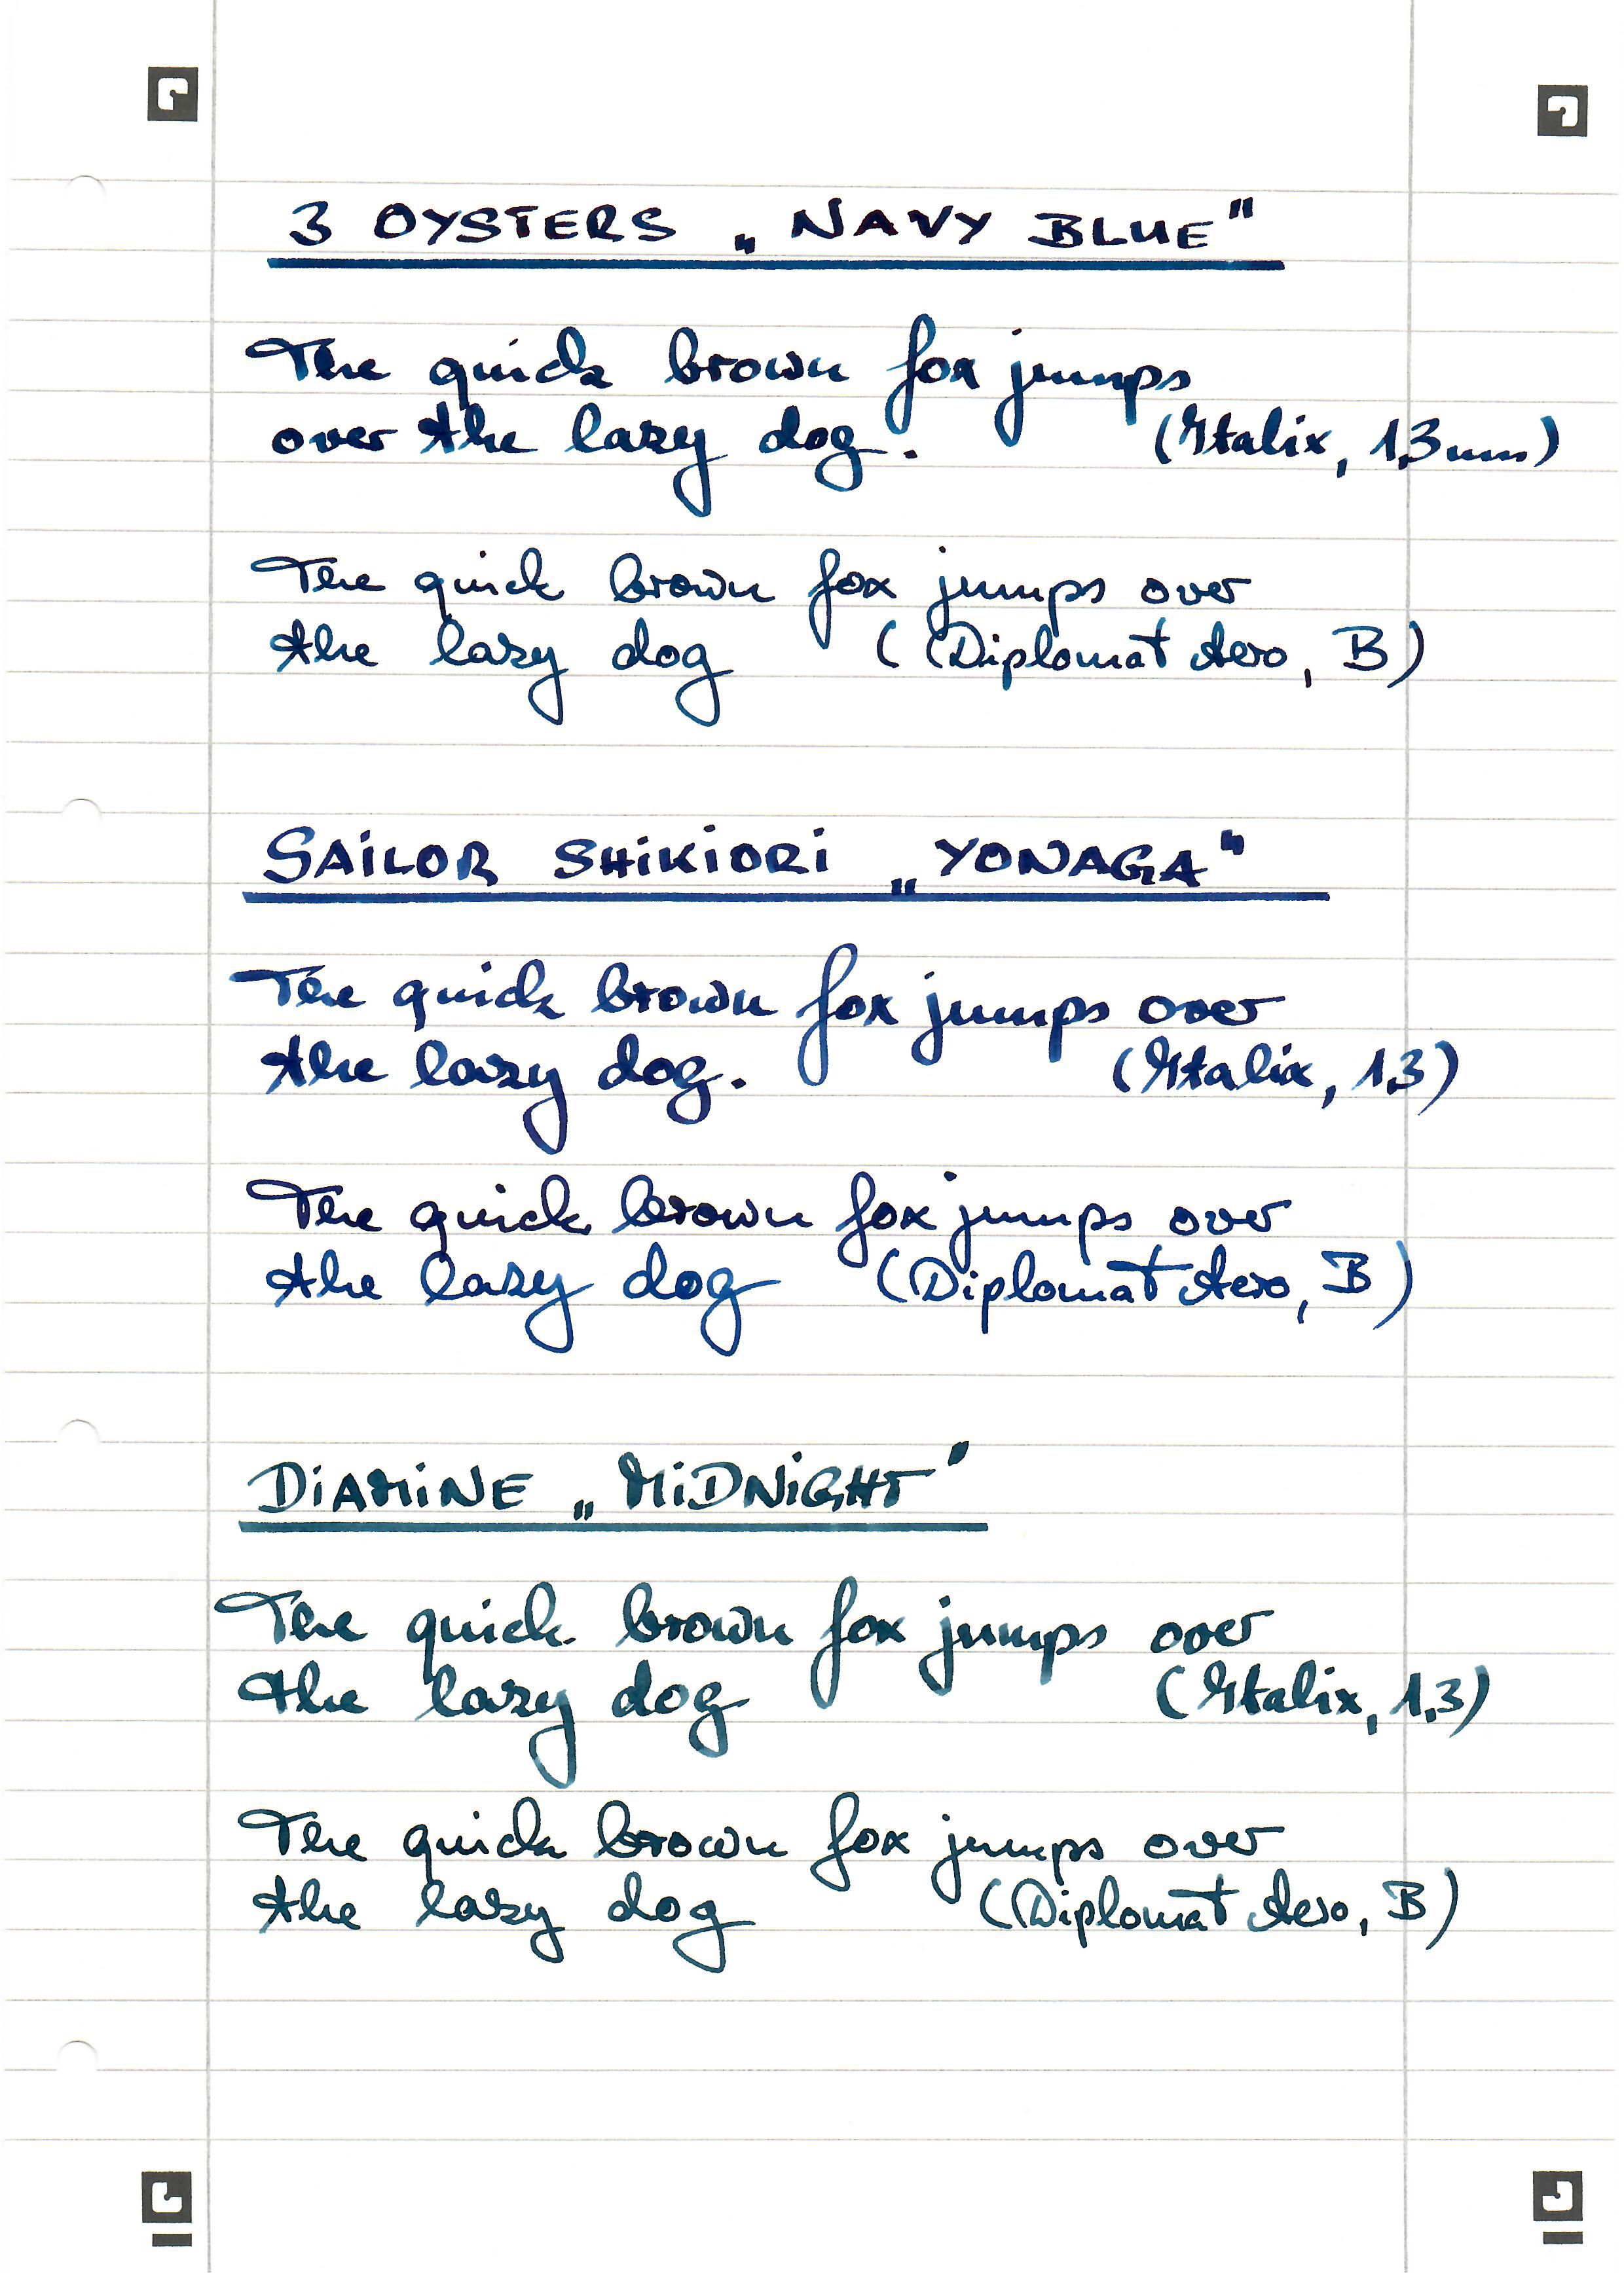 3 OYSTERS „NAVY BLUE"
The quick brown fox jumps
over the lazy dog. (Italix, 1,3mm)
The quick brown fox jumps over
the lazy dog (Diplomat Aero, B)
SAiLOR SHiKiORi „YONAGA"
The quick brown fox jumps over
the lazy dog. (Italix, 1,3)
The quick brown fox jumps over
the lazy dog (Diplomat Aero, B)
DiAMiNE „MiDNiGHT"
The quick brown fox jumps over
the lazy dog (Italix, 1,3)
The quick brown fox jumps over
the lazy dog (Diplomat Aero, B)